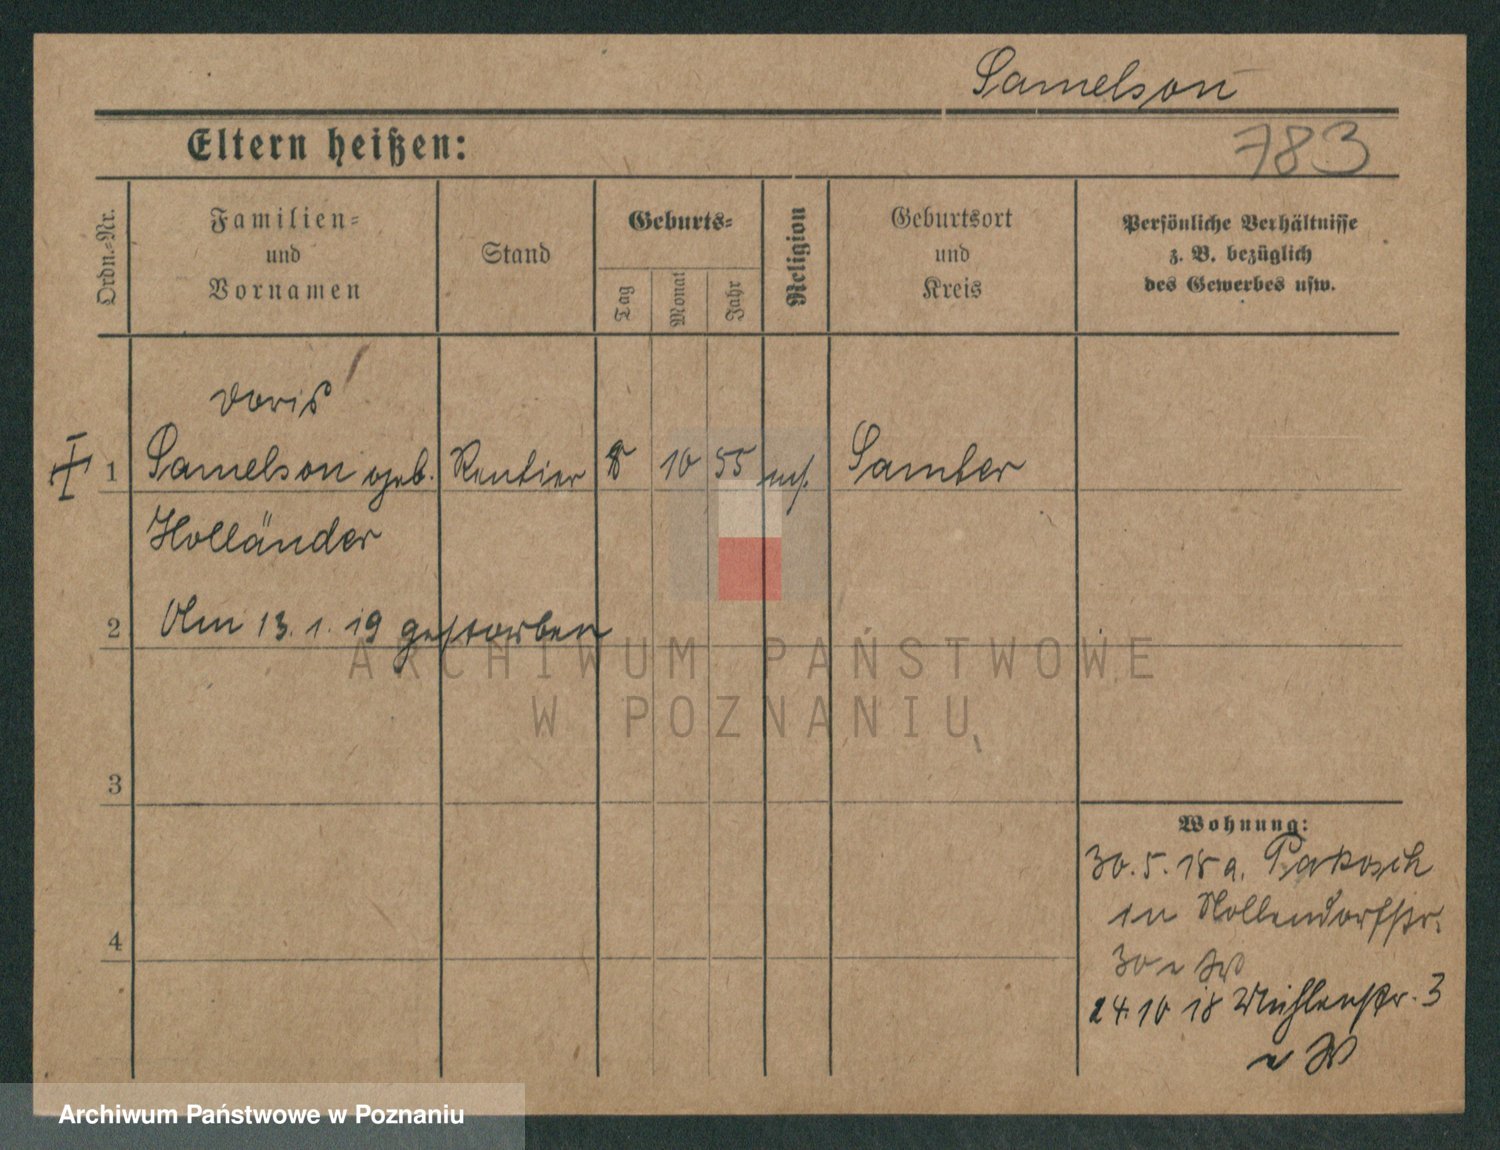 Samelson
Eltern heißen:
783
Ordn.-Nr.
Familien-
und
Vornamen
Stand
Geburts-
Tag
Monat
Jahr
Religion
Geburtsort
und
Kreis
Persönliche Verhältnisse
z. B. bezüglich
des Gewerbes usw.
Doris
1 Samelson geb. Rentier 8 10 55 mos. Samter
Holländer
2 Am 13. 1. 19 gestorben
3
4
Wohnung:
30. 5. 18 a. Pakosch
in Nollendorfstr.
30 e W
24. 10 18 Mühlenstr. 3
e W
ARCHIWUM PAŃSTWOWE
W POZNANIU
Archiwum Państwowe w Poznaniu